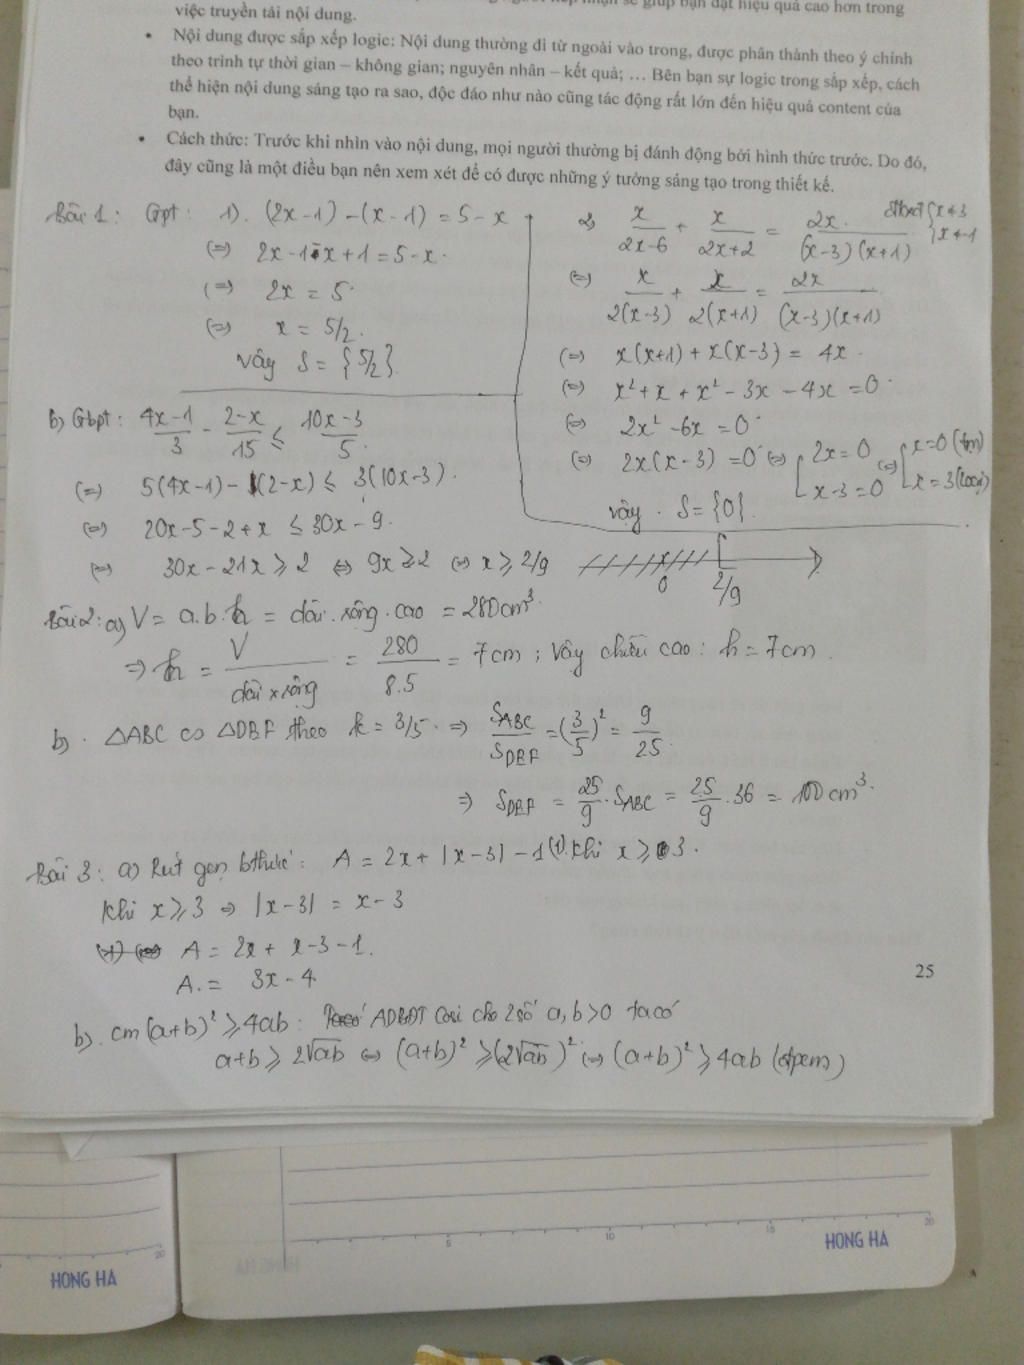 giúp bạn đạt hiệu quả cao hơn trong
việc truyền tải nội dung.
• Nội dung được sắp xếp logic: Nội dung thường đi từ ngoài vào trong, được phân thành theo ý chính
theo trình tự thời gian – không gian; nguyên nhân – kết quả; … Bên bạn sự logic trong sắp xếp, cách
thể hiện nội dung sáng tạo ra sao, độc đáo như nào cũng tác động rất lớn đến hiệu quả content của
bạn.
• Cách thức: Trước khi nhìn vào nội dung, mọi người thường bị đánh động bởi hình thức trước. Do đó,
đây cũng là một điều bạn nên xem xét để có được những ý tưởng sáng tạo trong thiết kế.
Bài 1: Gpt: 1). (2x-1) - (x-1) = 5-x
(=) 2x-1-x+1 = 5-x.
(=) 2x = 5
(=) x = 5/2.
Vậy S = {5/2}.
2) x/(2x-6) + x/(2x+2) = 2x/((x-3)(x+1)) { x ≠ 3
{ x ≠ -1
(=) x/(2(x-3)) + x/(2(x+1)) = 2x/((x-3)(x+1))
(=) x(x+1) + x(x-3) = 4x.
(=) x² + x + x² - 3x - 4x = 0
(=) 2x² - 6x = 0
(=) 2x(x-3) = 0 (=) [ 2x = 0 (=) [ x = 0 (tm)
x-3 = 0 x = 3 (loại)
vậy. S = {0}.
b) Gbpt: (4x-1)/3 - (2-x)/15 ≤ (10x-3)/5.
(=) 5(4x-1) - (2-x) ≤ 3(10x-3).
(=) 20x-5-2+x ≤ 30x-9.
(=) 30x-21x ≥ 2 (=) 9x ≥ 2 (=) x ≥ 2/9
0 2/9
Bài 2: a) V = a.b.h = dài.rộng.cao = 280cm³.
=> h = V/(dài x rộng) = 280/8.5 = 7cm; Vậy chiều cao: h = 7cm.
b). ΔABC ∽ ΔDBF theo k = 3/5. => S_ABC/S_DBF = (3/5)² = 9/25.
=> S_DBF = 25/9 . S_ABC = 25/9 . 36 = 100cm³.
Bài 3: a) Rút gọn bthức: A = 2x + |x-3| - 1 (1). khi x ≥ 3.
Khi x ≥ 3 => |x-3| = x-3
A = 2x + x-3-1.
A. = 3x-4
25
b). cm (a+b)² ≥ 4ab: ADBĐT Cosi cho 2 số a,b>0 ta có
a+b ≥ 2√ab (=) (a+b)² ≥ (2√ab)² (=) (a+b)² ≥ 4ab (đpcm)
5 10 15 20
20
HONG HA
HONG HA